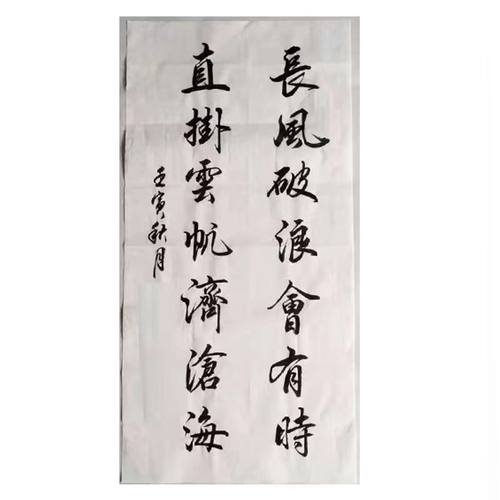 長風破浪會有時
直掛雲帆濟滄海
壬寅秋月